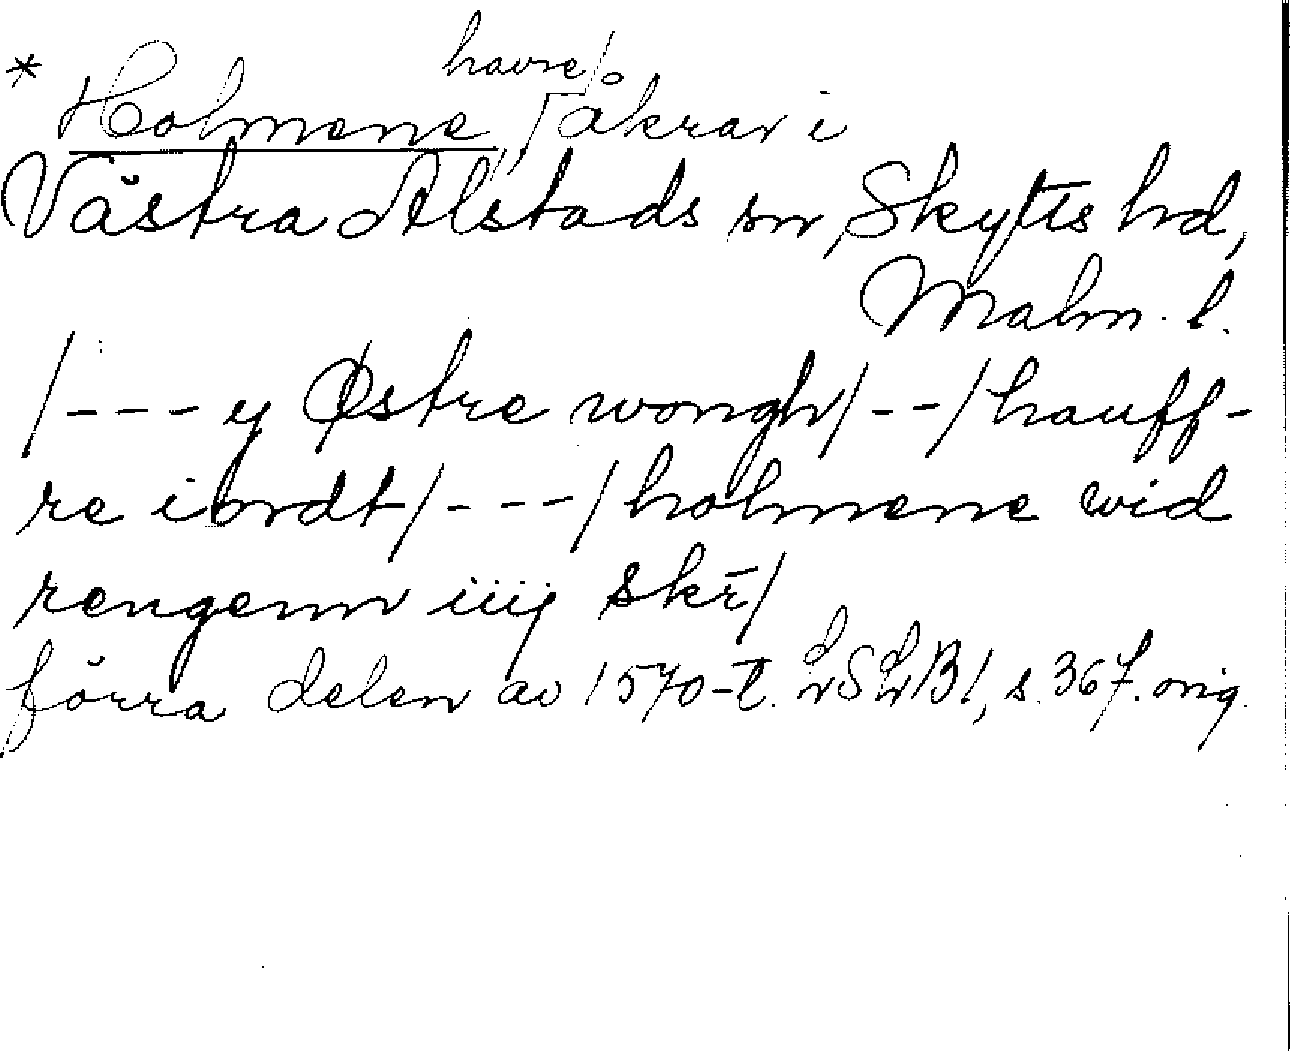 * Holmene, havre/åkrar i
Västra Alstads sn, Skytts hd,
Malm. l.
/--- y Østre wongh/--/hauff-
re iordt/---/holmene wid
rengenn iiij skr̄/
förra delen av 1570-t. LSLB1, s. 367. orig.